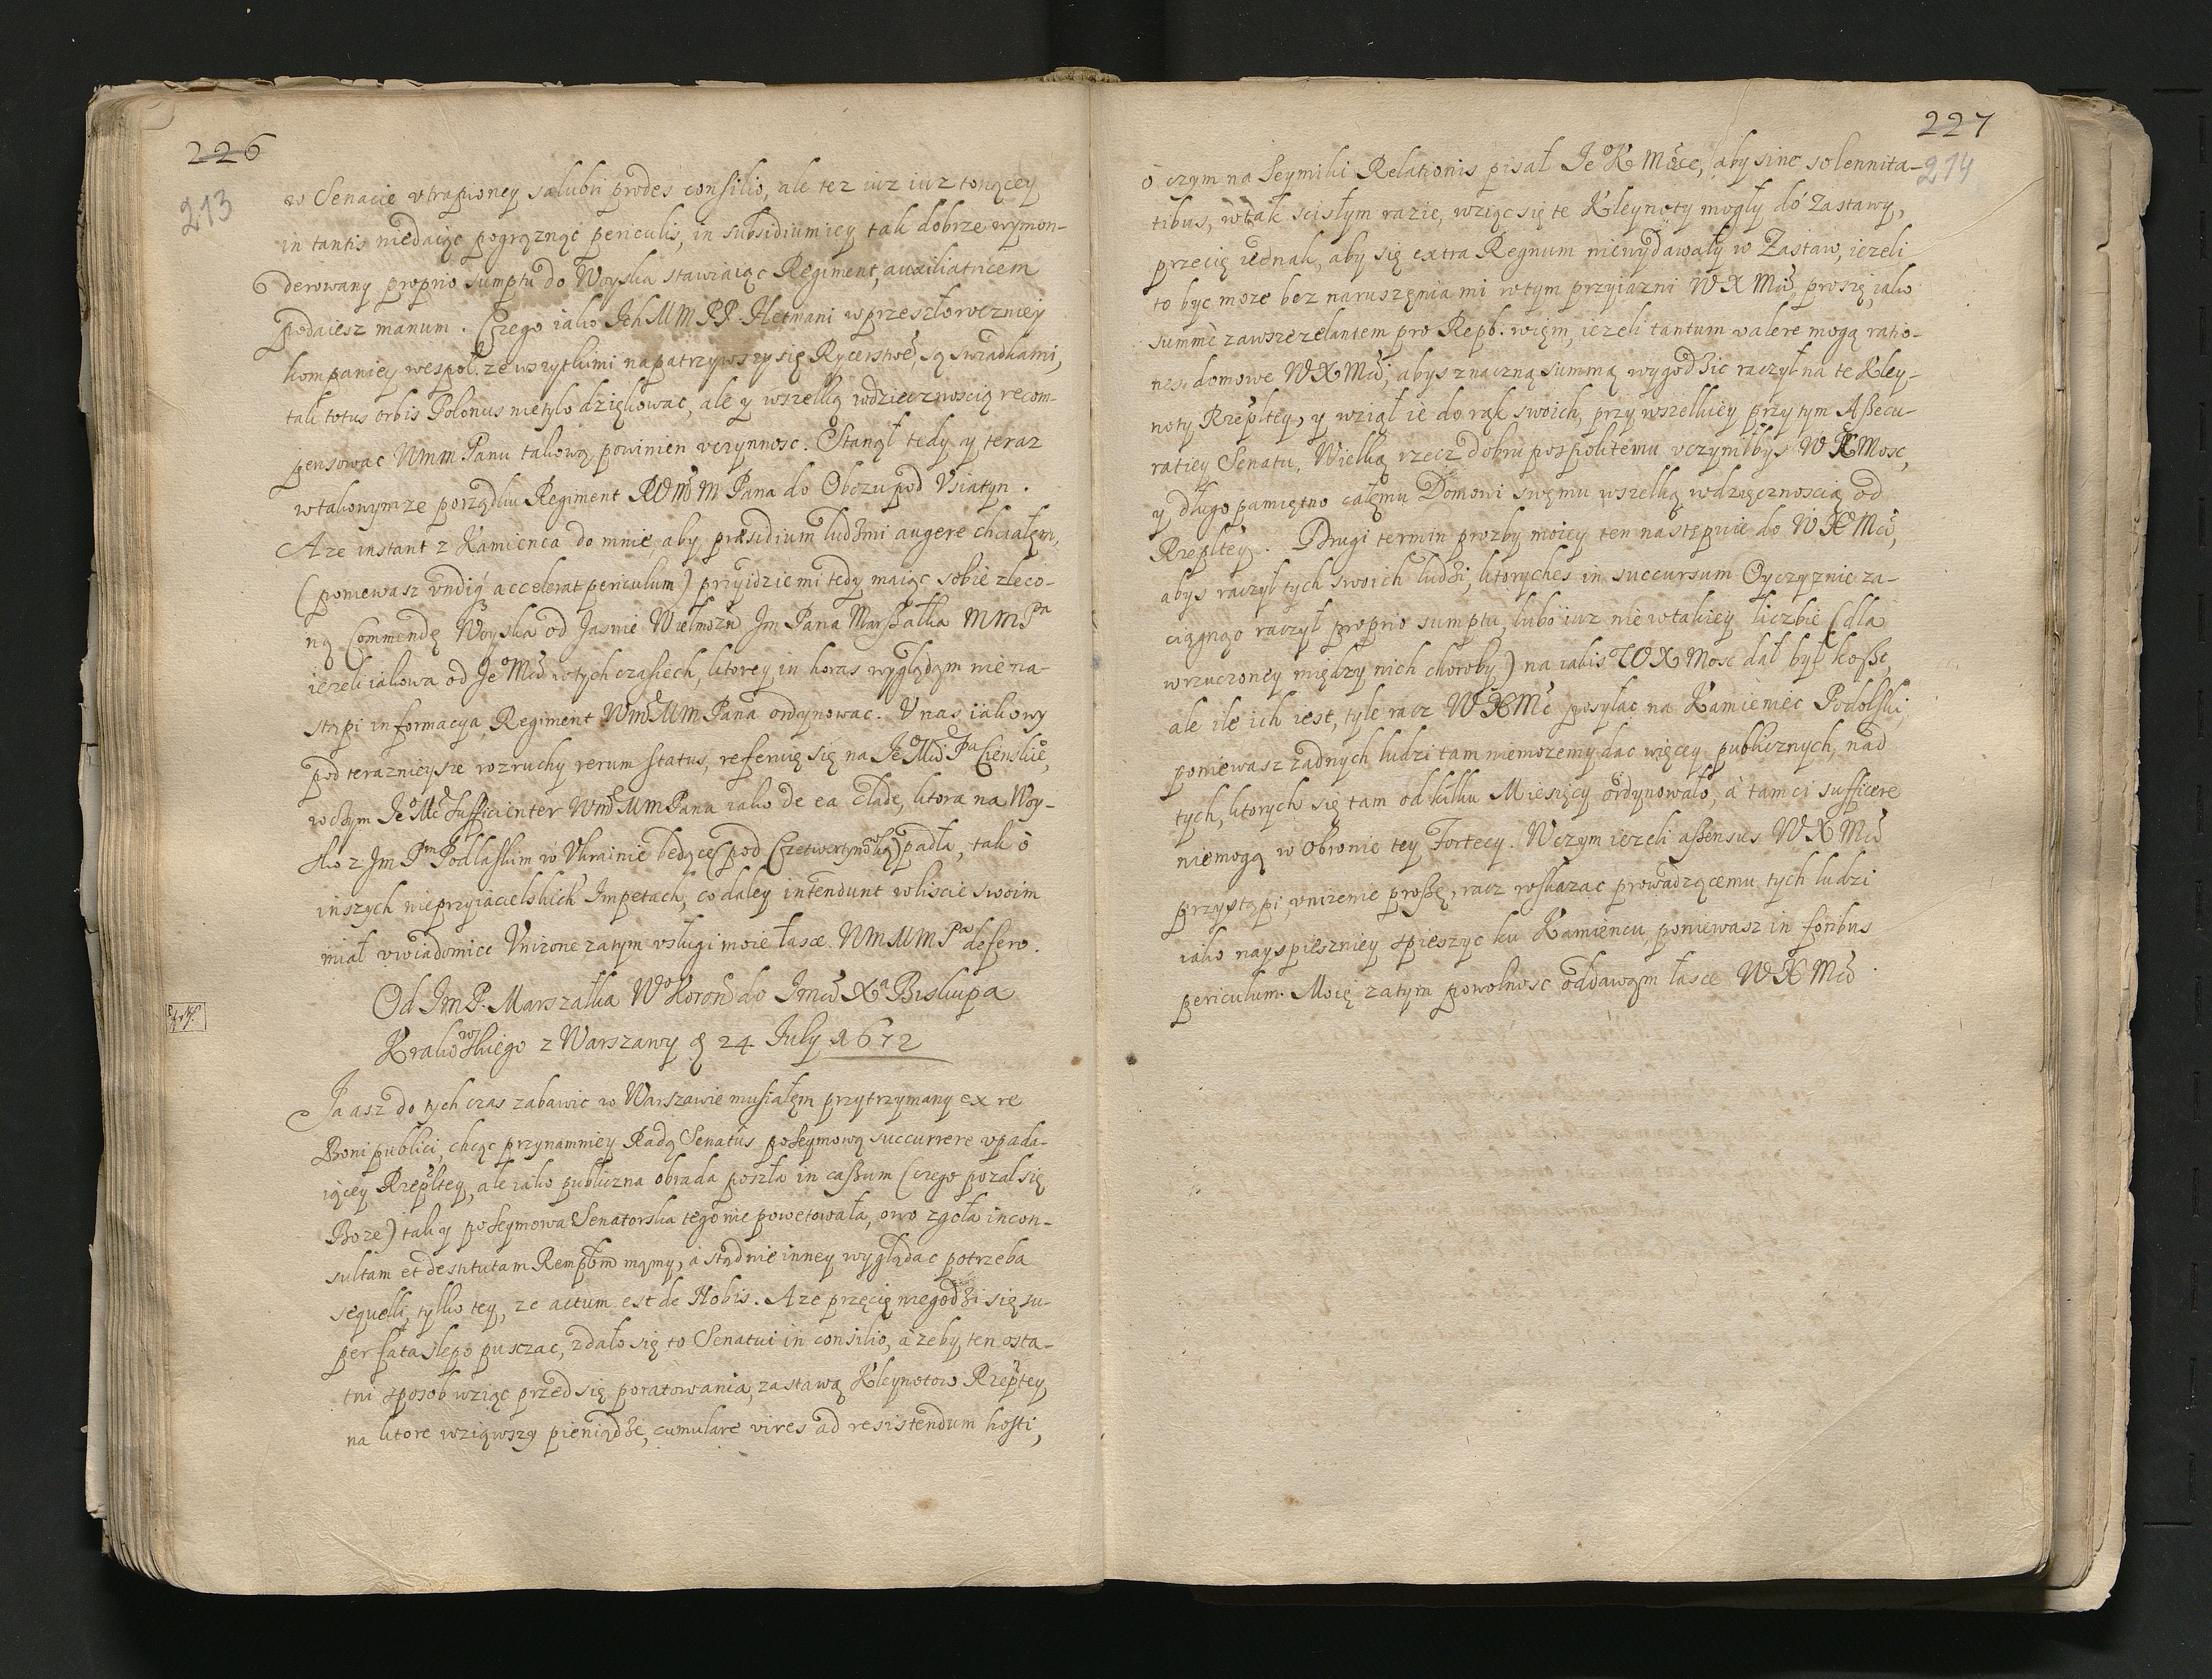 226
213
w Senacie vtrapioney salubri prodes consilio, ale tez iuz iuz tonącey
in tantis niedaiąc pogrąznąc periculis, in subsidium iey tak dobrze wymon-
derowany proprio sumptu do Woyska stawiaiąc Regiment, auxiliatricem
podaiesz manum. Czego iako Ich MM PP. Hetmani w przeszłoroczniey
kompaniey wespoł ze wszytkimi napatrzywszy się Rycerstwē, są swiadkami,
tak totus orbis Polonus nietylo dziękowac, ale y wszelką wdziecznoscią recom-
pensowac Wmm Panu takową powinien vczynnosc. Stanął tedy y teraz
w takowymze porządku Regiment WMM Pana do Obozu pod Vsiatyn.
Aze instant z Kamienca do mnie, aby præsidium ludzmi augere chciałem,
(poniewasz vndiq accelerat periculum) przyidzie mi tedy maiąc sobie zleco-
ną Commendę Woyska od Jasnie Wielmozn Im Pana Marszałka MMPa
iezeli iakowa od Je Mci w tych czasiech, ktorey in horas wyglądąm nie na-
stąpi informacya, Regiment Wmć MM Pana ordynowac. V nas iakowy
pod teraznieysze rozruchy rerum status, referuię się na Je Mći Pa Cienskiē,
w czym Je Mć sufficienter Wmć MM Pana iako de ea clade, ktora na Woy-
sko z Im Pm Podlaskim w Vkrainie będące (pod Czetwertynowką) padła, tak o
inszych nieprzyiacielskich Impetach, co daley intendunt w liscie swoim
miał vwiadomice Vnizone zatym vsługi moie łasce WmMMPa defero.
Od Im P. Marszałka Wo Koron do Imći Xa Biskupa
Krakowskiego z Warszawy d 24 July 1672
Ja asz do tych czas zabawic w Warszawie musiałęm przytrzymany ex re
Boni publici, chcąc przynamniey Radą Senatūs poseymową succurrere vpada-
iącey Rzepltey, ale iako publiczna obrada poszła in cassum (czego pozal się
Boze) tak y poseymowa Senatorska tego nie powetowała, owo zgoła incon-
sultam et destitutam Rempbm mąmy, a stąd nie inney wyglądac potrzeba
sequelli, tylko tey, ze actum est de Nobis. Aze przęcię niegodzi się su-
per fata slepo pusczac, zdało się to Senatui in consilio, azeby ten osta-
tni sposob wziąc przed się poratowania, zastawą Kleynotow Rzepltey,
na ktore wziąwszy pieniądze, cumulare vires ad resistendum hosti,
227
214
o czym na Seymiki Relationis pisał Je K Mosc, aby sine solennita-
tibus, w tak scisłym razie, wziąc się te Kleynoty mogły do Zastawy,
przecię iednak, aby się extra Regnum niewydawały w Zastaw, iezeli
to byc moze bez naruszęnia mi w tym przyiazni WX Mći, prosię, iako
summē zawsze zelantem pro Repb. więm, iezeli tantum valere mogą ratio-
nes domowe WX Mći, abys znaczną summą wygodzic raczył na te Kley-
noty Rzepltey, y wziął ie do rąk swoich, przy wszelkiey przy tym Assecu-
ratiey Senatu, Wielką rzecz dobru pospolitemu vczyniłbys WX Mosc,
y długo pamiętno całęmu Domowi swęmu wszelką wdzięcznoscią od
Rzepltey. Drugi termin prozby moiey ten następuie do WX Mći,
abys raczył tych swoich ludzi, ktoryches in succursum Oyczyznie za-
ciągnąc raczył proprio sumptu, lubo iuz nie w takiey liczbie (dla
wrzuconey między nich choroby) na iakis WX Mosc dał był kosst,
ale ile ich iest, tyle racz WX Mć posyłac na Kamieniec Podolski,
poniewasz zadnych ludzi tam niemozemy dac więcey publicznych, nad
tych, ktorych się tam od kilku Miesięcy ordynowało, a tamci sufficere
niemogą w Obronie tey Fortecy. W czym iezeli assensus WX Mći
przystąpi, vnizenie prosszę, racz wskazac prowadzącemu tych ludzi
iako nayspieszniey spieszyc ku Kamiencu, poniewasz in foribus
periculum. Moię zatym powolnosc oddawąm łasce WX Mći